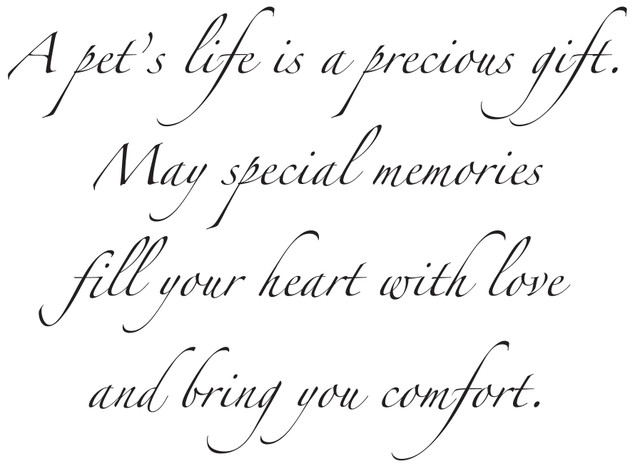 A pet's life is a precious gift.
May special memories
fill your heart with love
and bring you comfort.